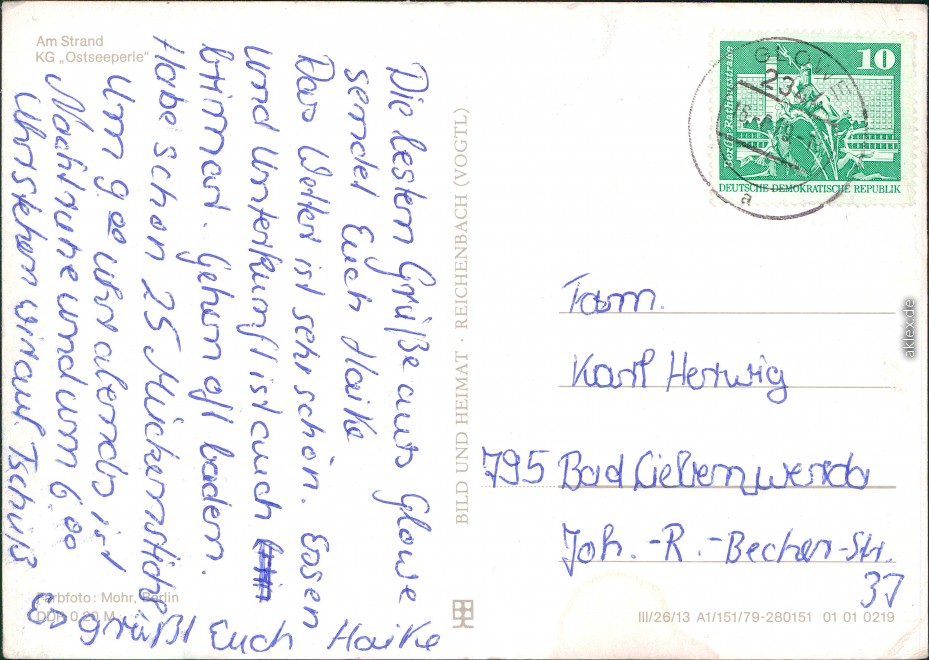 Am Strand
KG „Ostseeperle"
Die besten Grüße aus Glowe
sendet Euch Haike
Das Wetter ist sehr schön. Essen
und Unterkunft ist auch
primar. Gehen oft baden.
Habe schon 25 Mückenstiche
Um 9.00 uhr abends ist
Nachtruhe und um 6.00
Uhr stehen wir auf. Tschüß
Es grüßt Euch Haike
Farbfoto: Mohr, Berlin
DDR 0,20 M
BILD UND HEIMAT · REICHENBACH (VOGTL)
GLOWE
a
10
DEUTSCHE DEMOKRATISCHE REPUBLIK
Fam.
Karl Hertwig
795 Bad Liebenwerda
Joh.-R.-Becher-Str.
III/26/13 A1/151/79-280151 01 01 0219
aklex.de